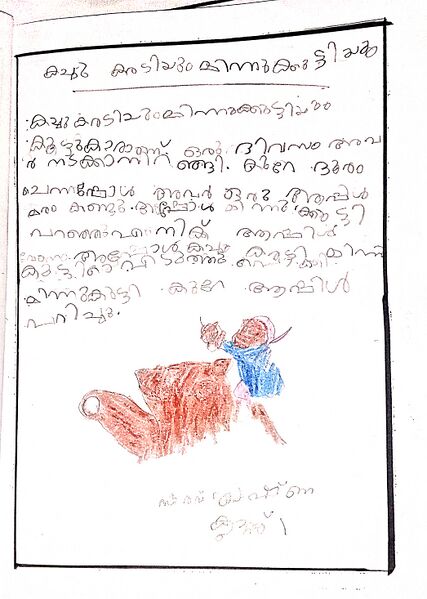 കച്ചു കരടിയും മിന്നുക്കുട്ടിയും
കച്ചു കരടിയും മിന്നുക്കുട്ടിയും
കൂട്ടുകാരാണ് ഒരു ദിവസം അവ
ർ നടക്കാനിറങ്ങി. കുറേ ദൂരം
ചെന്നപ്പോൾ അവർ ഒരു ആപ്പിൾ
മരം കണ്ടു. അപ്പോൾ മിന്നുക്കുട്ടി
പറഞ്ഞു എനിക് ആപ്പിൾ
വേണം. അപ്പോൾ കച്ചു കരടി മിന്നു
കുട്ടിയെ എടുത്തു
മിന്നുകുട്ടി കുറേ ആപ്പിൾ
പറിച്ചു.
ക്ലാസ് 1